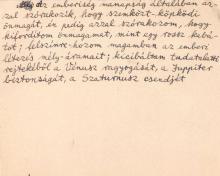 az emberiség manapság általában az-
zal szórakozik, hogy szemközt-köpködi
önmagát, én pedig azzal szórakozom, hogy
kifordítom önmagamat, mint egy rossz kabá-
tot; felszínre-hozom magamban az emberi
létezés mély-áramait; kicibálom tudatalatti
rejtekéből a Vénusz ragyogását, a Juppiter
biztonságát, a Szaturnusz csendjét